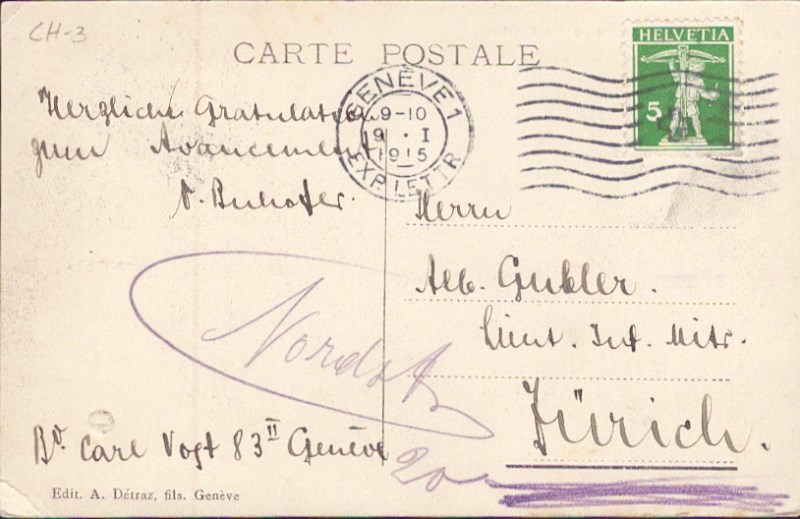 CH-3
CARTE POSTALE
HELVETIA
5
GENÈVE 1
9-10
19 · I
1915
EXP. LETTR.
Herzliche Gratulation
zum Avancement
Herrn
Alb. Gubler.
Lieut. Inf. Mitr.
Zürich.
Nordstr.
20
Bd. Carl Vogt 83 II Genève
Edit. A. Détraz, fils. Genève